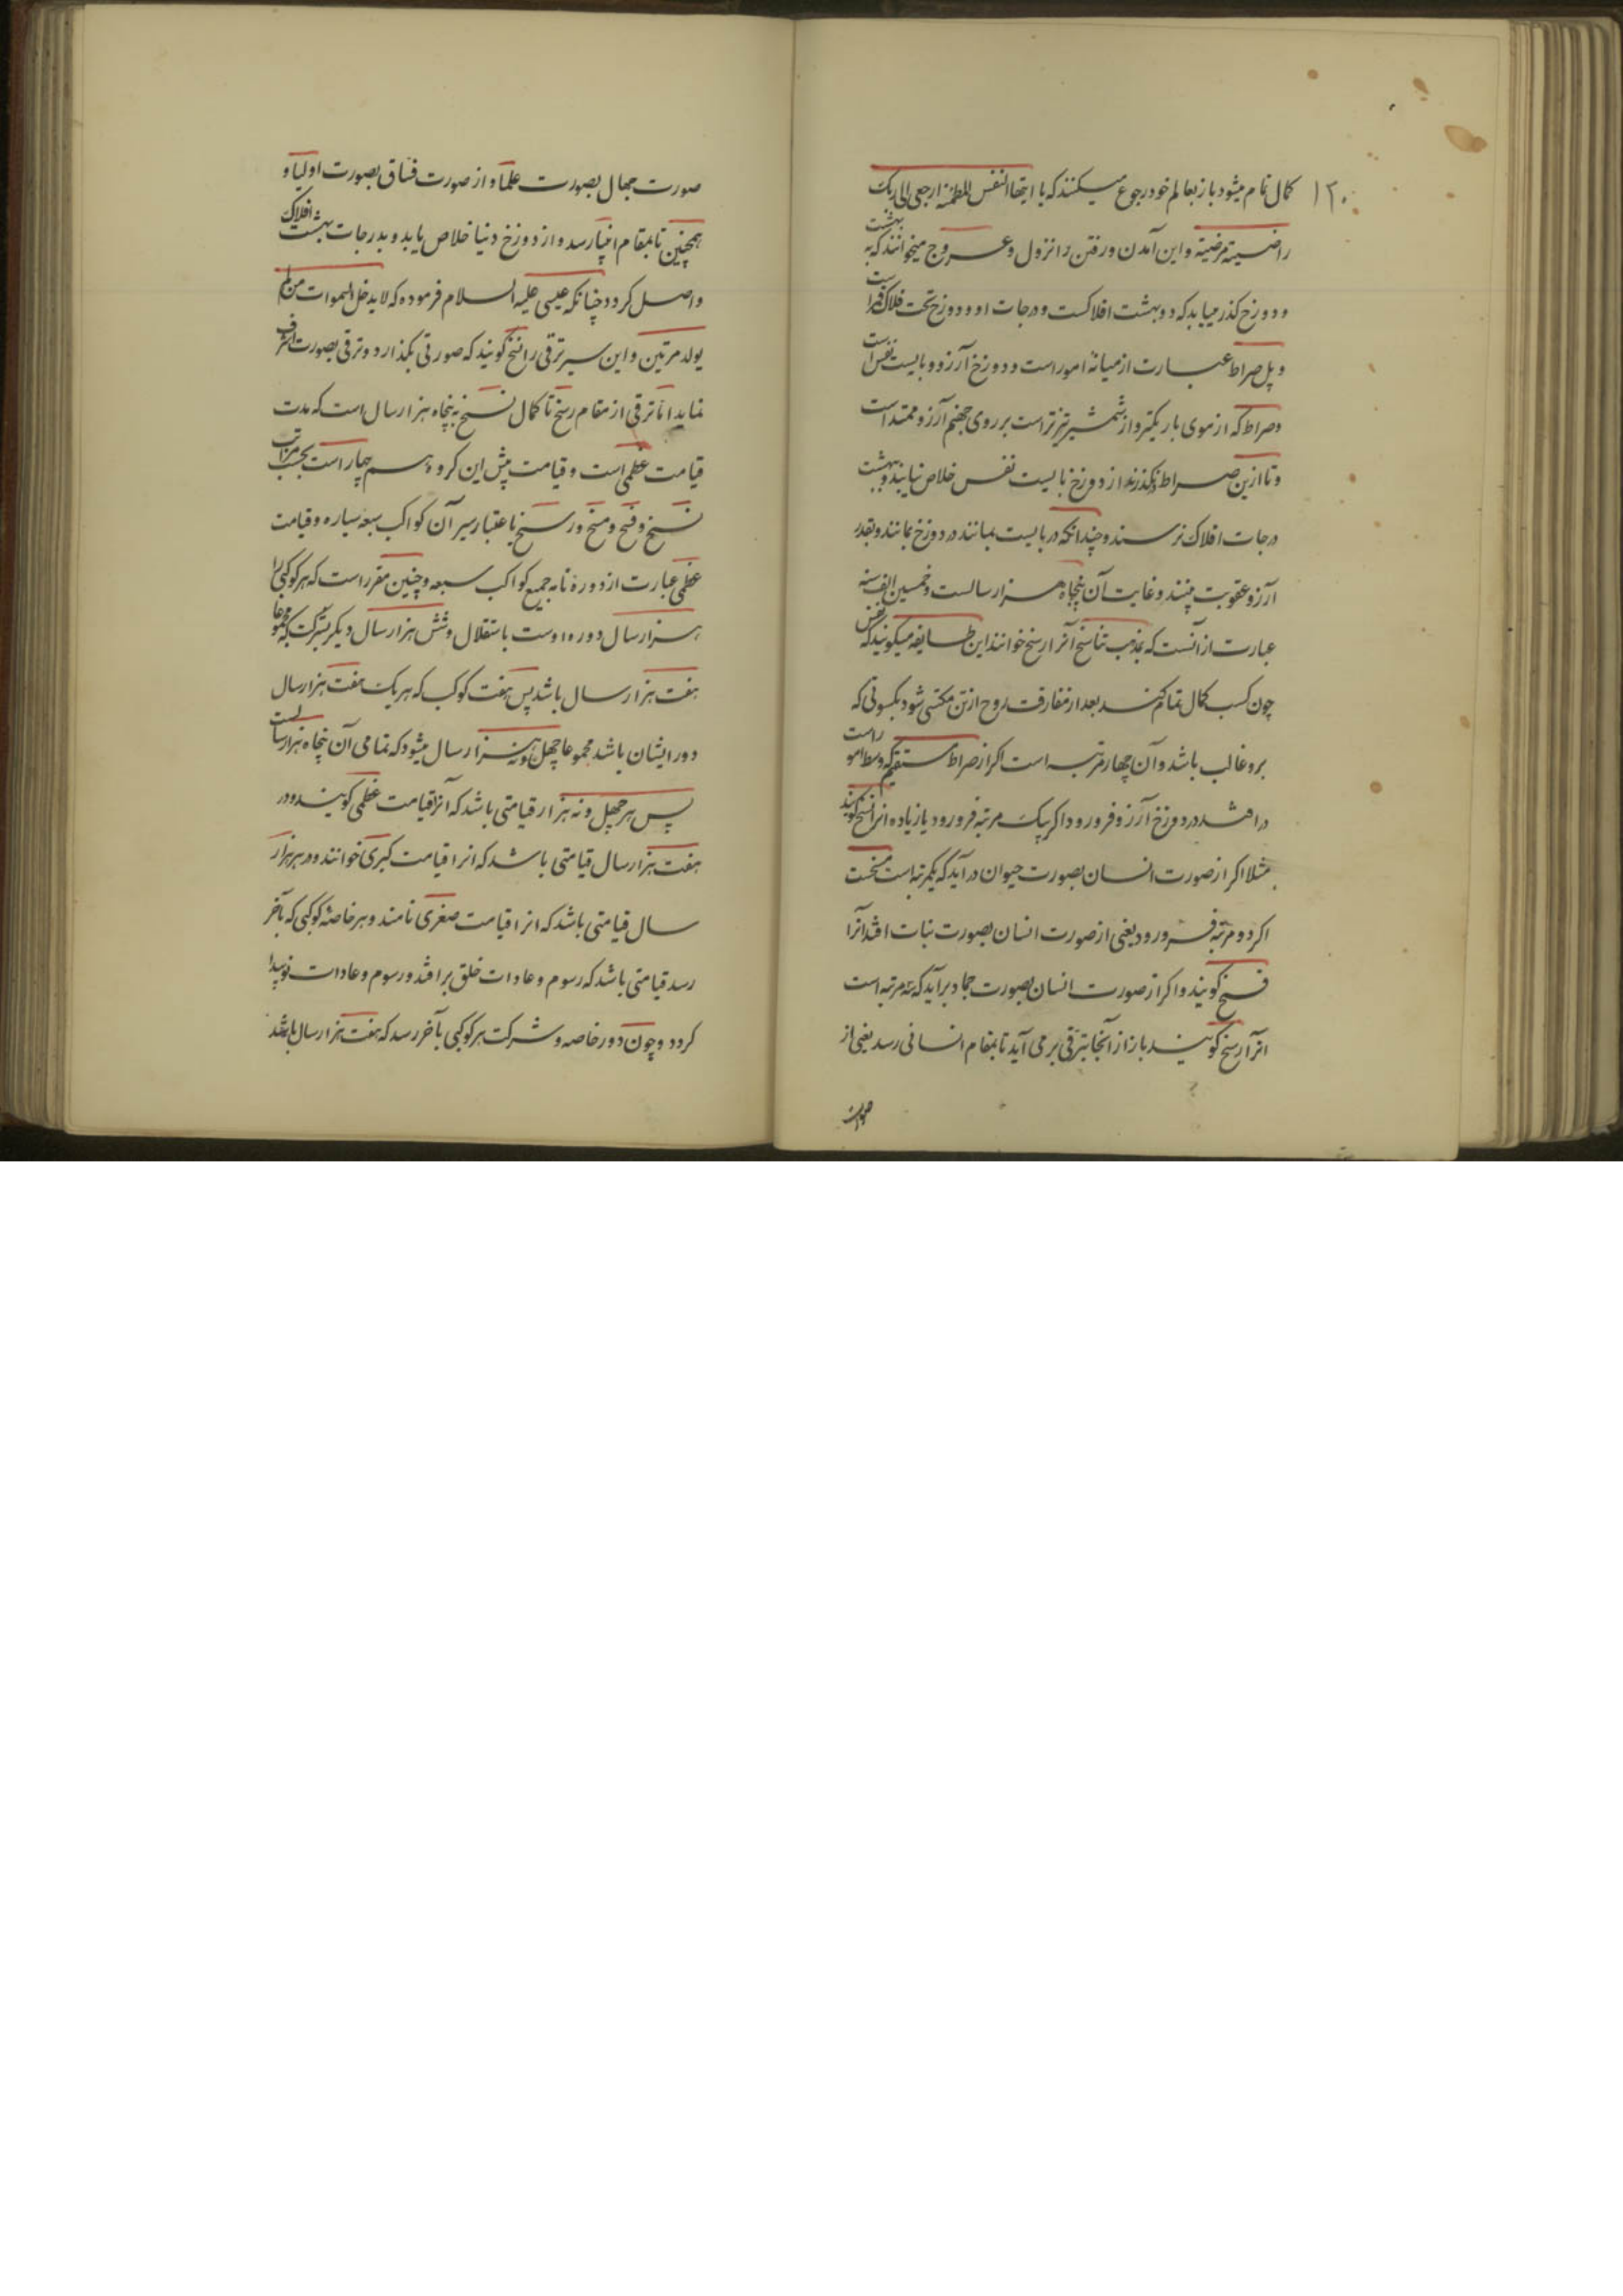 ۱۲۰
کمال تمام میشود باز بعالم خود رجوع میکنند که یا ایتها النفس المطمئنة ارجعی الی ربک
راضیة مرضیة و این آمدن و رفتن را نزول و عروج میخوانند که به بهشت
و دوزخ گذر میباید کرد و بهشت افلاکست و درجات او و دوزخ تحت فلک قمر است
و پل صراط عبارت از میانهٔ امور است و دوزخ آرزو و بایست نفس است
و صراط که از موی باریکتر و از شمشیر تیزتر است بر روی جهنم آرزو ممتد است
و تا ازین صراط نگذرند از دوزخ بایست نفس خلاص نیابند و به بهشت
درجات افلاک نرسند و چندانکه در بایست بمانند در دوزخ بمانند و بقدر
آرزو عقوبت بینند و غایت آن پنجاه هزار سالست و خمسین الف سنه
عبارت از آنست که بمذهب تناسخ آنرا رسخ خوانند این طایفه میگویند که نفس
چون کسب کمال تمام کند بعد از مفارقت روح از تن مکتسی شود بکسوتی که
برو غالب باشد و آن چهار مرتبه است اگر از صراط مستقیم که وسط امور است
در افتد در دوزخ آرزو فرو رود اگر بیک مرتبه فرو رود یا زیاده انرا نسخ گویند
مثلا اگر از صورت انسان بصورت حیوان در آید که یکمرتبه است مسخست
اگر دو مرتبه فرو رود یعنی از صورت انسان بصورت نبات افتد آنرا
فسخ گویند و اگر از صورت انسان بصورت جماد برآید که سه مرتبه است
انرا رسخ گویند باز از آنجا بترقی بر می آید تا بمقام انسانی رسد یعنی از
صورت
صورت جهال بصورت علما و از صورت فساق بصورت اولیا و
همچنین تا بمقام انبیا رسد و از دوزخ دنیا خلاص یابد و بدرجات بهشت افلاک
واصل گردد چنانکه عیسی علیه السلام فرموده که لا یدخل السموات من لم
یولد مرتین و این سیر ترقی را نسخ گویند که صورتی بگذارد و ترقی بصورت اشرف
نماید اما ترقی از مقام رسخ تا کمال نسخ به پنجاه هزار سال است که مدت
قیامت عظمی است و قیامت پیش این گروه هم چهار است بحسب مراتب
نسخ و فسخ و مسخ و رسخ باعتبار سیر آن کواکب سبعه سیاره و قیامت
عظمی عبارت از دوره تامه جمیع کواکب سبعه و چنین مقرر است که هر کوکبی را
هزار سال دوره اوست باستقلال و شش هزار سال دیگر بشرکت که مجموعا
هفت هزار سال باشد پس هفت کوکب که هر یک هفت هزار سال
دور ایشان باشد مجموعا چهل و نه هزار سال میشود که تمامی آن پنجاه هزار سالست
پس هر چهل و نه هزار قیامتی باشد که آنرا قیامت عظمی گویند و در
هفت هزار سال قیامتی باشد که انرا قیامت کبری خوانند و در هر هزار
سال قیامتی باشد که انرا قیامت صغری نامند و هر خاصهٔ کوکبی که بآخر
رسد قیامتی باشد که رسوم و عادات خلق بر افتد و رسوم و عادات نو پیدا
گردد و چون دور خاصه و شرکت هر کوکبی بآخر رسد که هفت هزار سال باشد